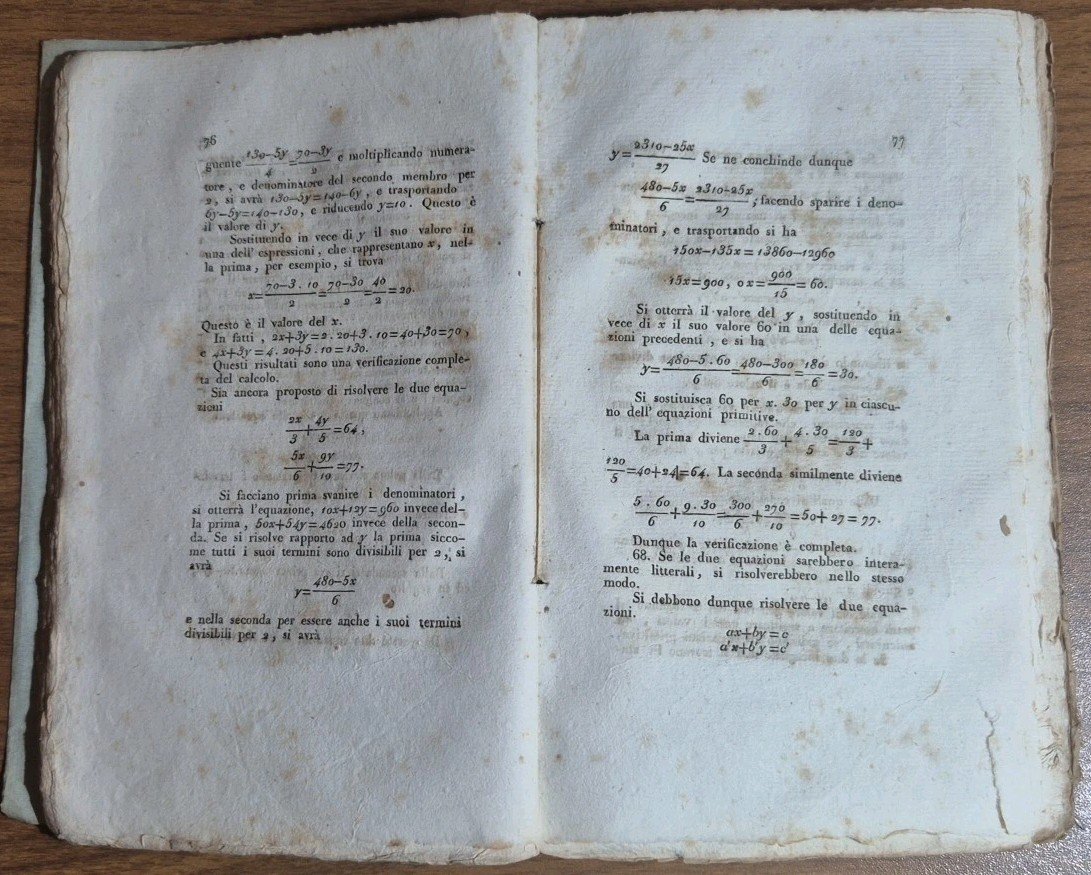 76
guente 130-5y/4=70-3y/2 e moltiplicando numera-
tore, e denominatore del secondo membro per
2, si avrà 130-5y=140-6y, e trasportando
6y-5y=140-130, e riducendo y=10. Questo è
il valore di y.
Sostituendo in vece di y il suo valore in
una dell' espressioni, che rappresentano x, nel-
la prima, per esempio, si trova
x=70-3 . 10/2=70-30/2=40/2=20.
Questo è il valore del x.
In fatti, 2x+3y=2 . 20+3 . 10=40+30=70,
e 4x+3y=4 . 20+5 . 10=130.
Questi risultati sono una verificazione comple-
ta del calcolo.
Sia ancora proposto di risolvere le due equa-
zioni
2x/3+4y/5=64,
5x/6+9y/10=77.
Si facciano prima svanire i denominatori,
si otterrà l'equazione, 10x+12y=960 invece del-
la prima, 50x+54y=4620 invece della secon-
da. Se si risolve rapporto ad y la prima sicco-
me tutti i suoi termini sono divisibili per 2, si
avrà
y=480-5x/6
e nella seconda per essere anche i suoi termini
divisibili per 2, si avrà
77
y=2310-25x/27 Se ne conchinde dunque
480-5x/6=2310-25x/27, facendo sparire i deno-
minatori, e trasportando si ha
150x-135x=13860-12960
15x=900, o x=900/15=60.
Si otterrà il valore del y, sostituendo in
vece di x il suo valore 60 in una delle equa-
zioni precedenti, e si ha
y=480-5 . 60/6=480-300/6=180/6=30.
Si sostituisca 60 per x. 30 per y in ciascu-
no dell' equazioni primitive.
La prima diviene 2 . 60/3+4 . 30/5=120/3+
120/5=40+24=64. La seconda similmente diviene
5 . 60/6+9 . 30/10=300/6+270/10=50+27=77.
Dunque la verificazione è completa.
68. Se le due equazioni sarebbero intera-
mente litterali, si risolverebbero nello stesso
modo.
Si debbono dunque risolvere le due equa-
zioni.
ax+by=c
a'x+b'y=c'